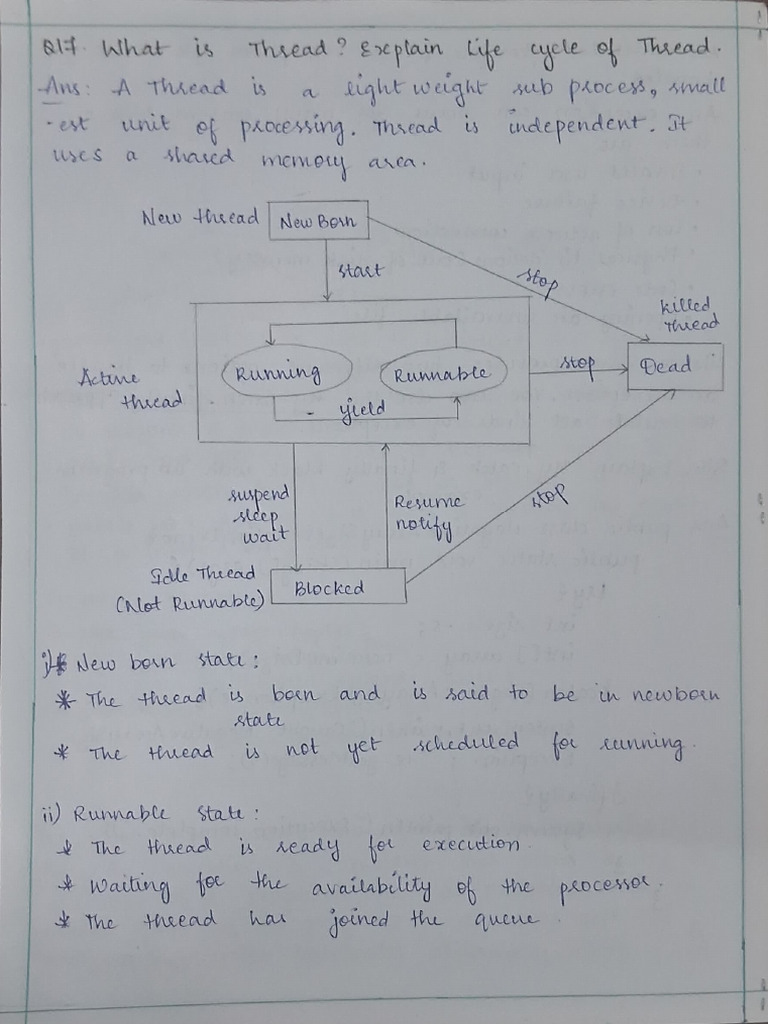 Q17. What is Thread? Explain Life cycle of Thread.
Ans: A Thread is a light weight sub process, small
-est unit of processing. Thread is independent. It
uses a shared memory area.
New thread
New Born
start
stop
killed
Thread
Running
Runnable
stop
Dead
Active
thread
yield
suspend
sleep
wait
Resume
notify
stop
Idle Thread
(Not Runnable)
Blocked
i) New born state:
* The thread is born and is said to be in newborn
state
* The thread is not yet scheduled for running.
ii) Runnable state:
* The thread is ready for execution.
* Waiting for the availability of the processor.
* The thread has joined the queue.